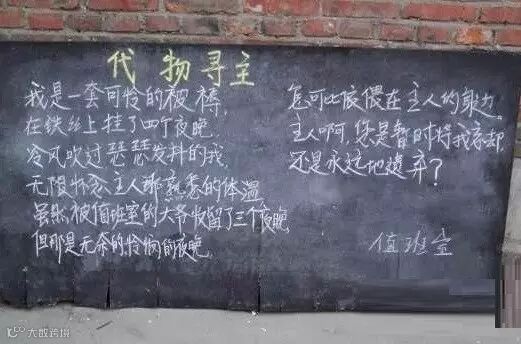 代物寻主
我是一套可怜的被褥,
在铁丝上挂了四个夜晚.
冷风吹过瑟瑟发抖的我,
无限怀念主人那熟悉的体温
虽然被值班室的大爷收留了三个夜晚
但那是无奈的怜悯的夜晚.
怎可比依偎在主人的身边.
主人啊,您是暂时将我忘却,
还是永远地遗弃?
值班室
大数跨境